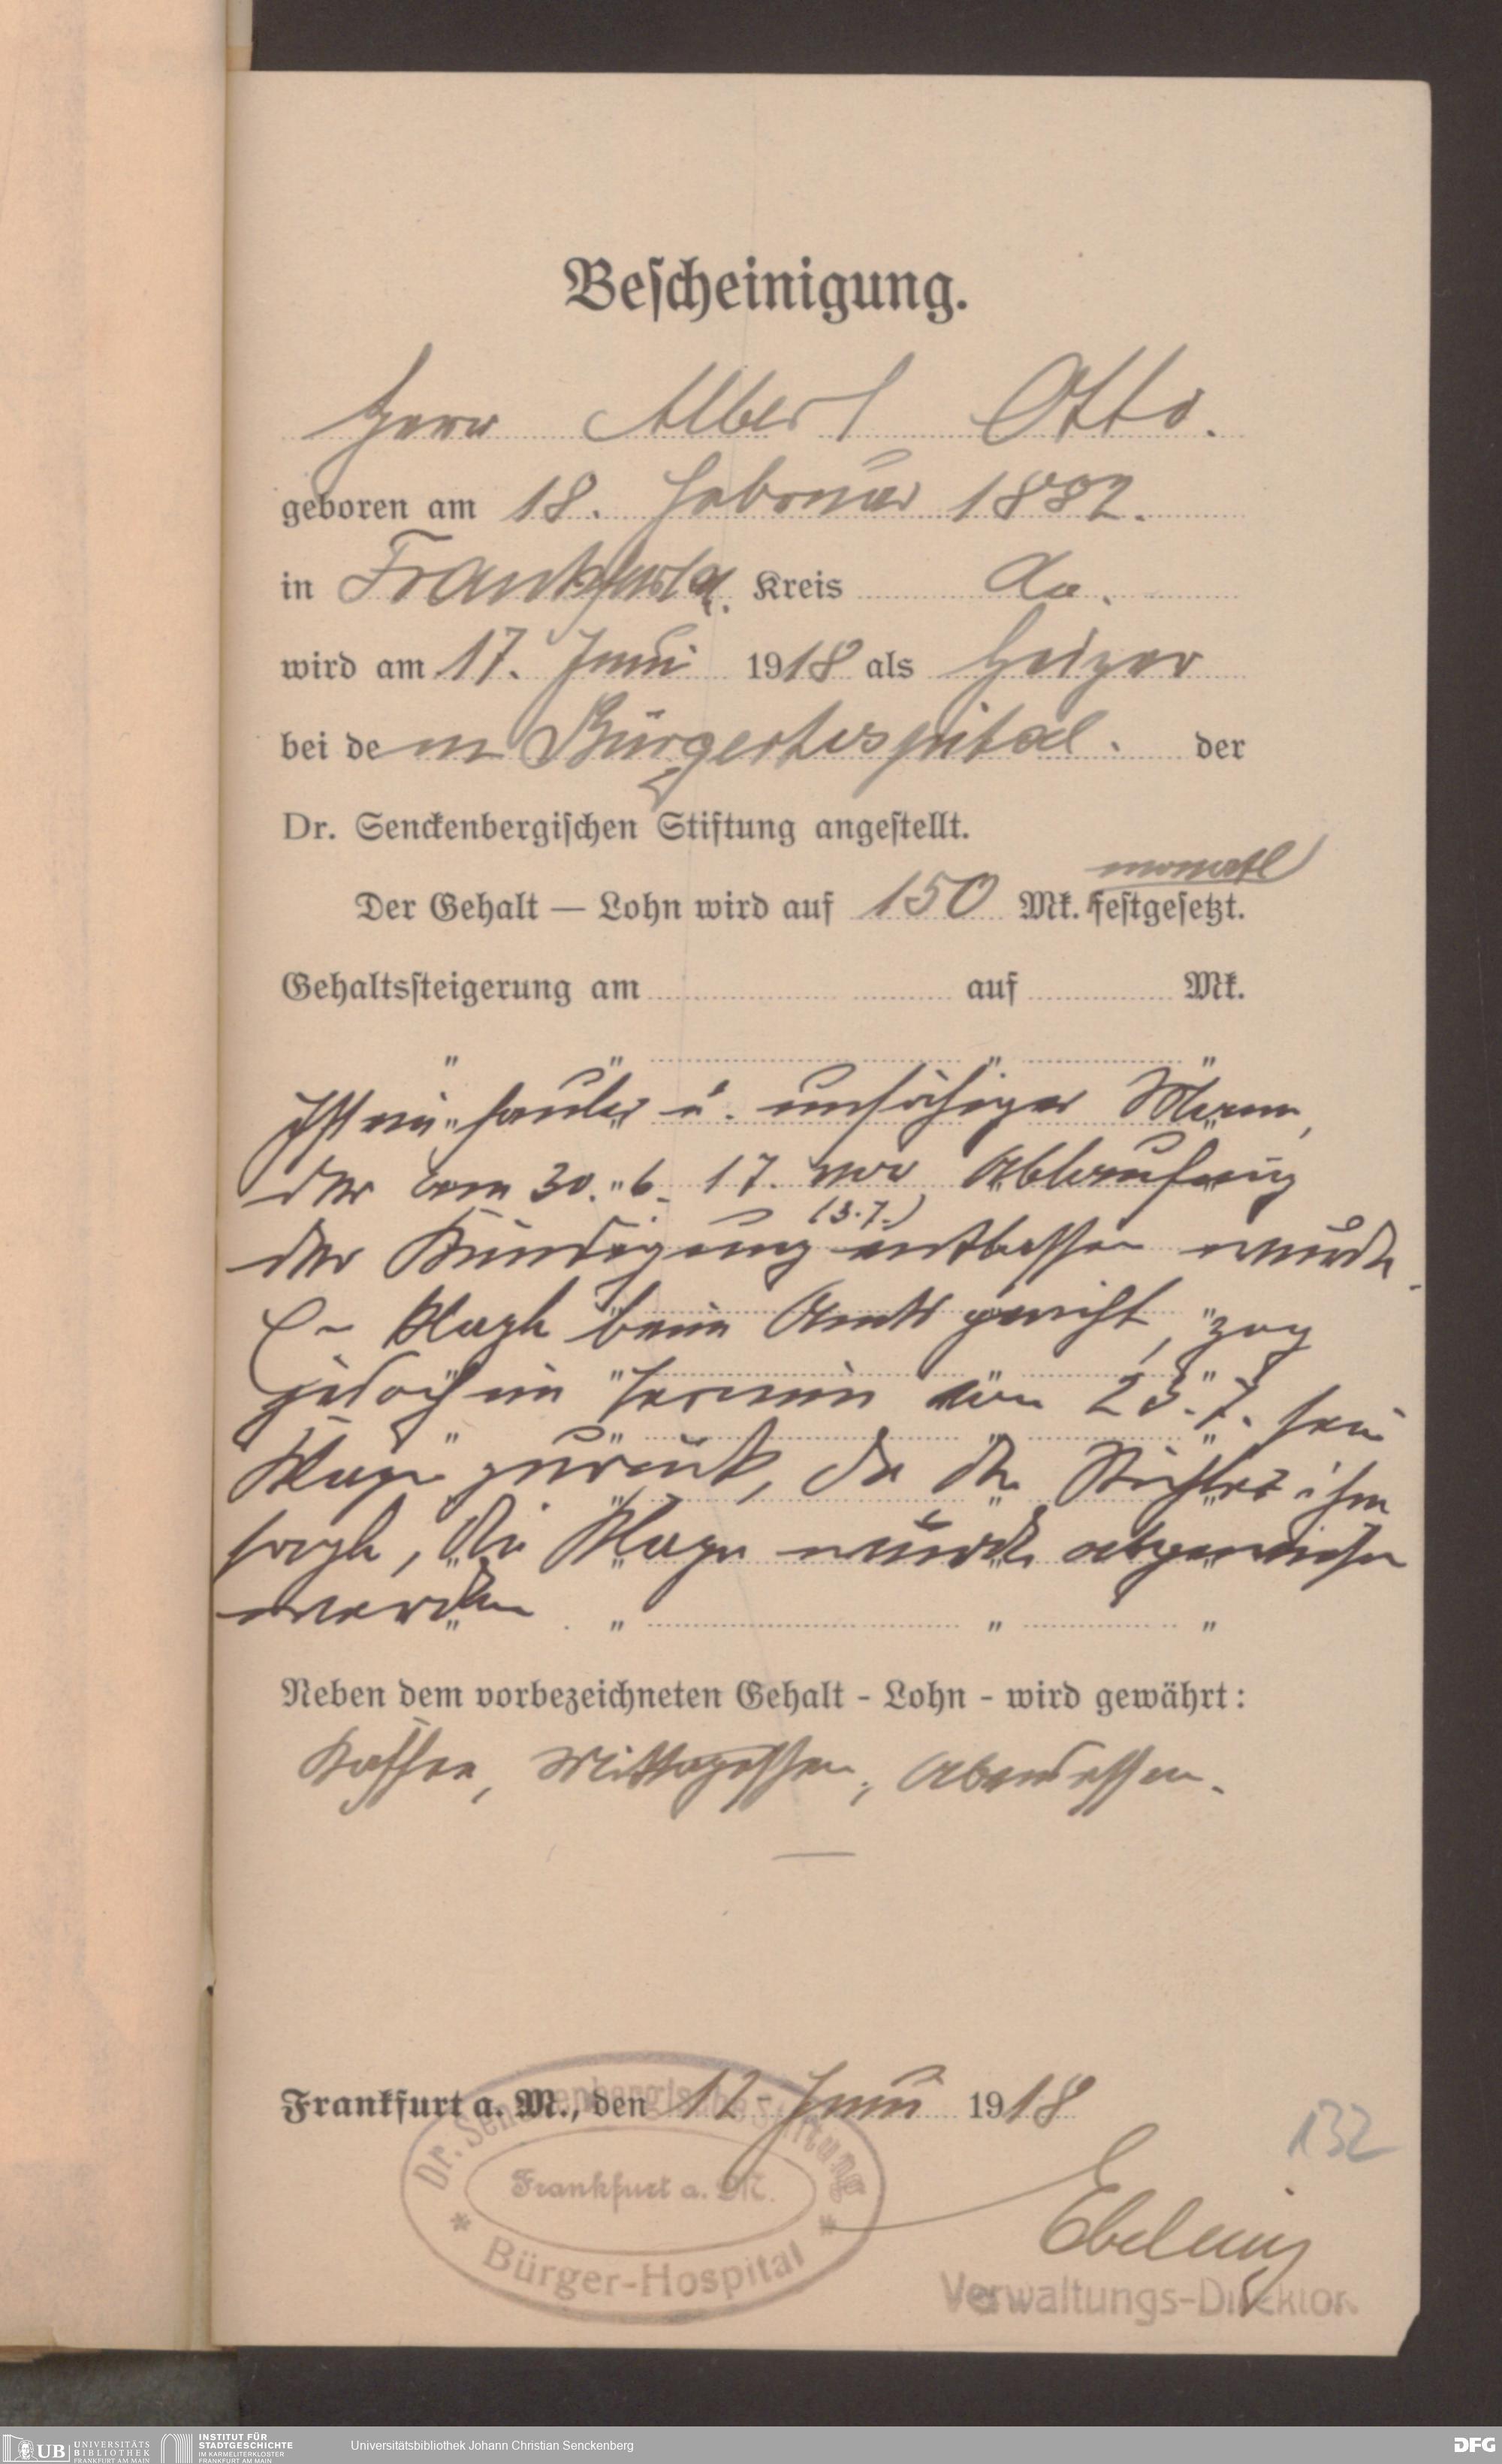 Bescheinigung.
Herr Albert Otto.
geboren am 18. Februar 1882.
in Frankfurt a. Kreis do.
wird am 17. Juni 1918 als Heizer
bei dem Bürgerhospital. der
Dr. Senckenbergischen Stiftung angestellt.
monatl
Der Gehalt — Lohn wird auf 150 Mk. festgesetzt.
Gehaltssteigerung am auf Mk.
" " " "
Ist ein fauler u. unfähiger Mann,
der am 30. 6. 17. vor Ablaufung
(3.7.)
der Kündigung entlassen wurde.
Er klagte beim Amtsgericht, zog
jedoch im Termin vom 23.7. seine
Klage zurück, da der Richter ihm
sagte, die Klage würde abgewiesen
werden. " " "
Neben dem vorbezeichneten Gehalt - Lohn - wird gewährt:
Kaffee, Mittagessen, Abendessen.
Frankfurt a. M., den 12. Juni 1918
Dr. Senckenbergische Stiftung
Frankfurt a. M.
* Bürger-Hospital *
132
Ebeling
Verwaltungs-Direktor.
UB UNIVERSITÄTS BIBLIOTHEK FRANKFURT AM MAIN
INSTITUT FÜR STADTGESCHICHTE IM KARMELITERKLOSTER FRANKFURT AM MAIN
Universitätsbibliothek Johann Christian Senckenberg
DFG